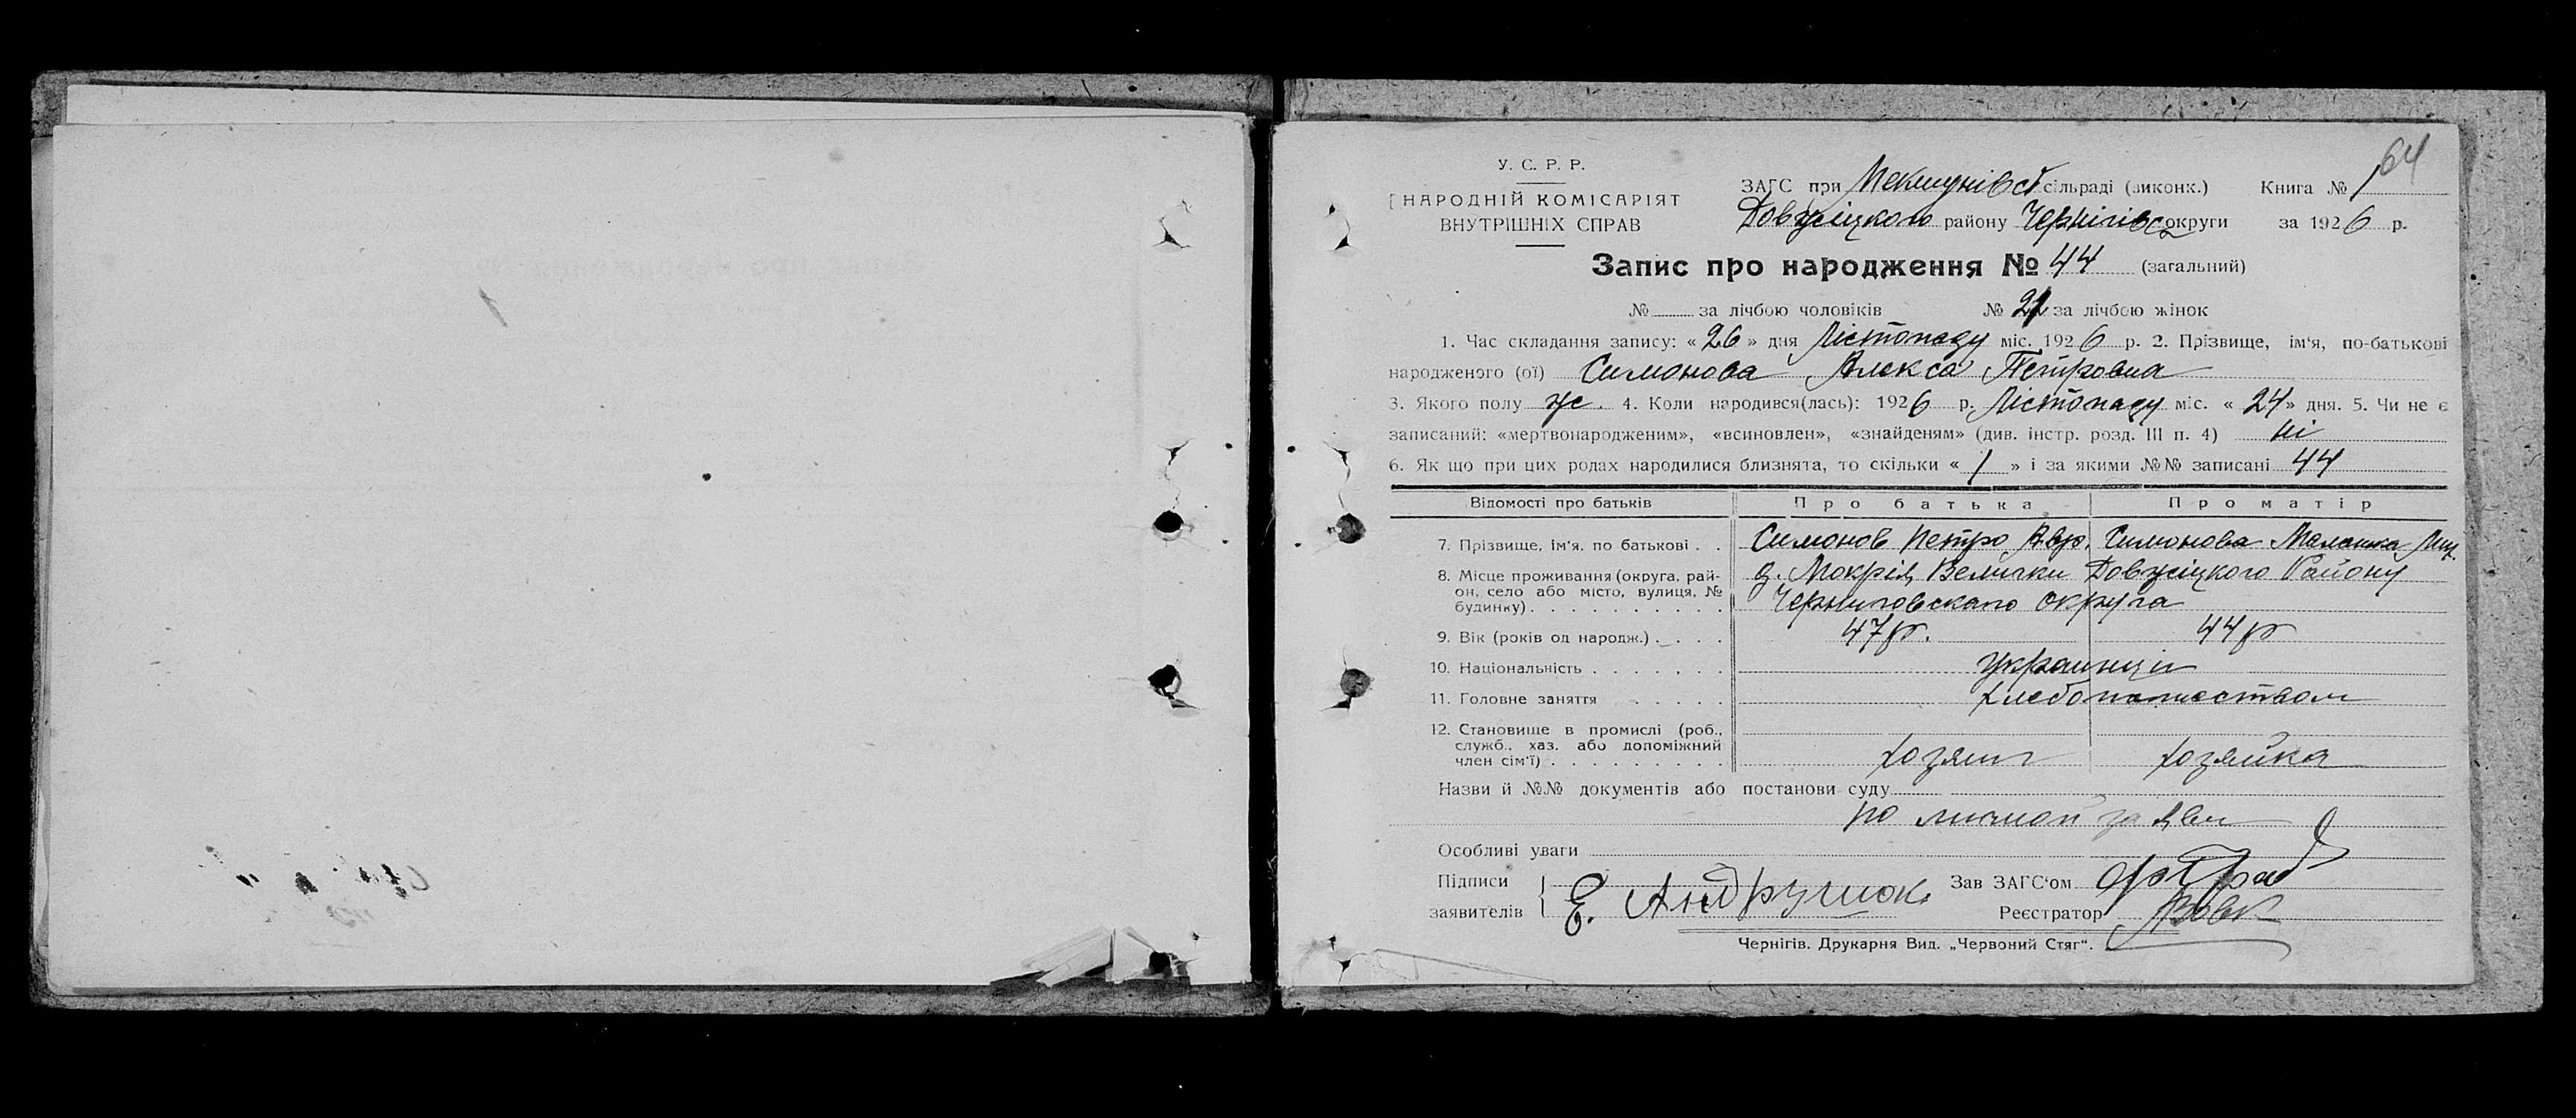 64
У. С. Р. Р.
НАРОДНІЙ КОМІСАРІЯТ
ВНУТРІШНІХ СПРАВ
ЗАГС при Пекмунівсб сільраді (виконк.) Книга № 1
Довжіцкого району Чернігівс округи за 1926 р.
Запис про народження № 44 (загальний)
№ за лічбою чоловіків № 21 за лічбою жінок
1. Час складання запису: «26» дня Лістопаду міс. 1926 р. 2. Прізвище, ім'я, по-батькові
народженого (ої) Симонова Алекса Петровна
3. Якого полу ж. 4. Коли народився(лась): 1926 р. Лістопаду міс. «24» дня. 5. Чи не є
записаний: «мертвонародженим», «всиновлен», «знайденям» (див. інстр. розд. III п. 4) ні
6. Як що при цих родах народилися близнята, то скільки «1» і за якими №№ записані 44
Відомості про батьків Про батька Про матір
7. Прізвище, ім'я, по батькові . . Симонов Петро Авр. Симонова Маланка
8. Місце проживання (округа, рай-
он, село або місто, вулиця, №
будинку) . . . . . . . . . .
д. Мокрія Велички Довжіцкого Району
Черниговскаго округа
9. Вік (років од народж.) . . . . 47 р. 44 р
10. Національність . . . . . . . украинци
11. Головне заняття . . . . . хлебопашеством
12. Становище в промислі (роб.,
служб., хаз. або допоміжний
член сім'ї) . . . . . . . . . хозяин хозяйка
Назви й №№ документів або постанови суду
по заяви
Особливі уваги
Підписи
заявителів
Е. Андрушок
Зав ЗАГС'ом
Реєстратор Вовк
Чернігів. Друкарня Вид. „Червоний Стяг“.